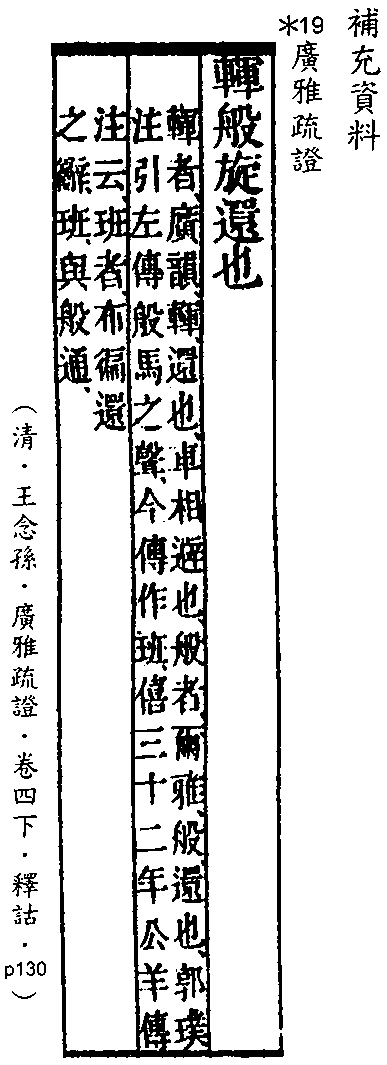 補充資料
＊19廣雅疏證
般旋還也
者、廣韻、還也、車相避也、般者、爾雅、般、還也、郭璞
注引左傳般馬之聲、今傳作班、僖三十二年公羊傳
注云、班者、布徧還
之辭、班、與般通、
（清．王念孫．廣雅疏證．卷四下．釋詁．p130）